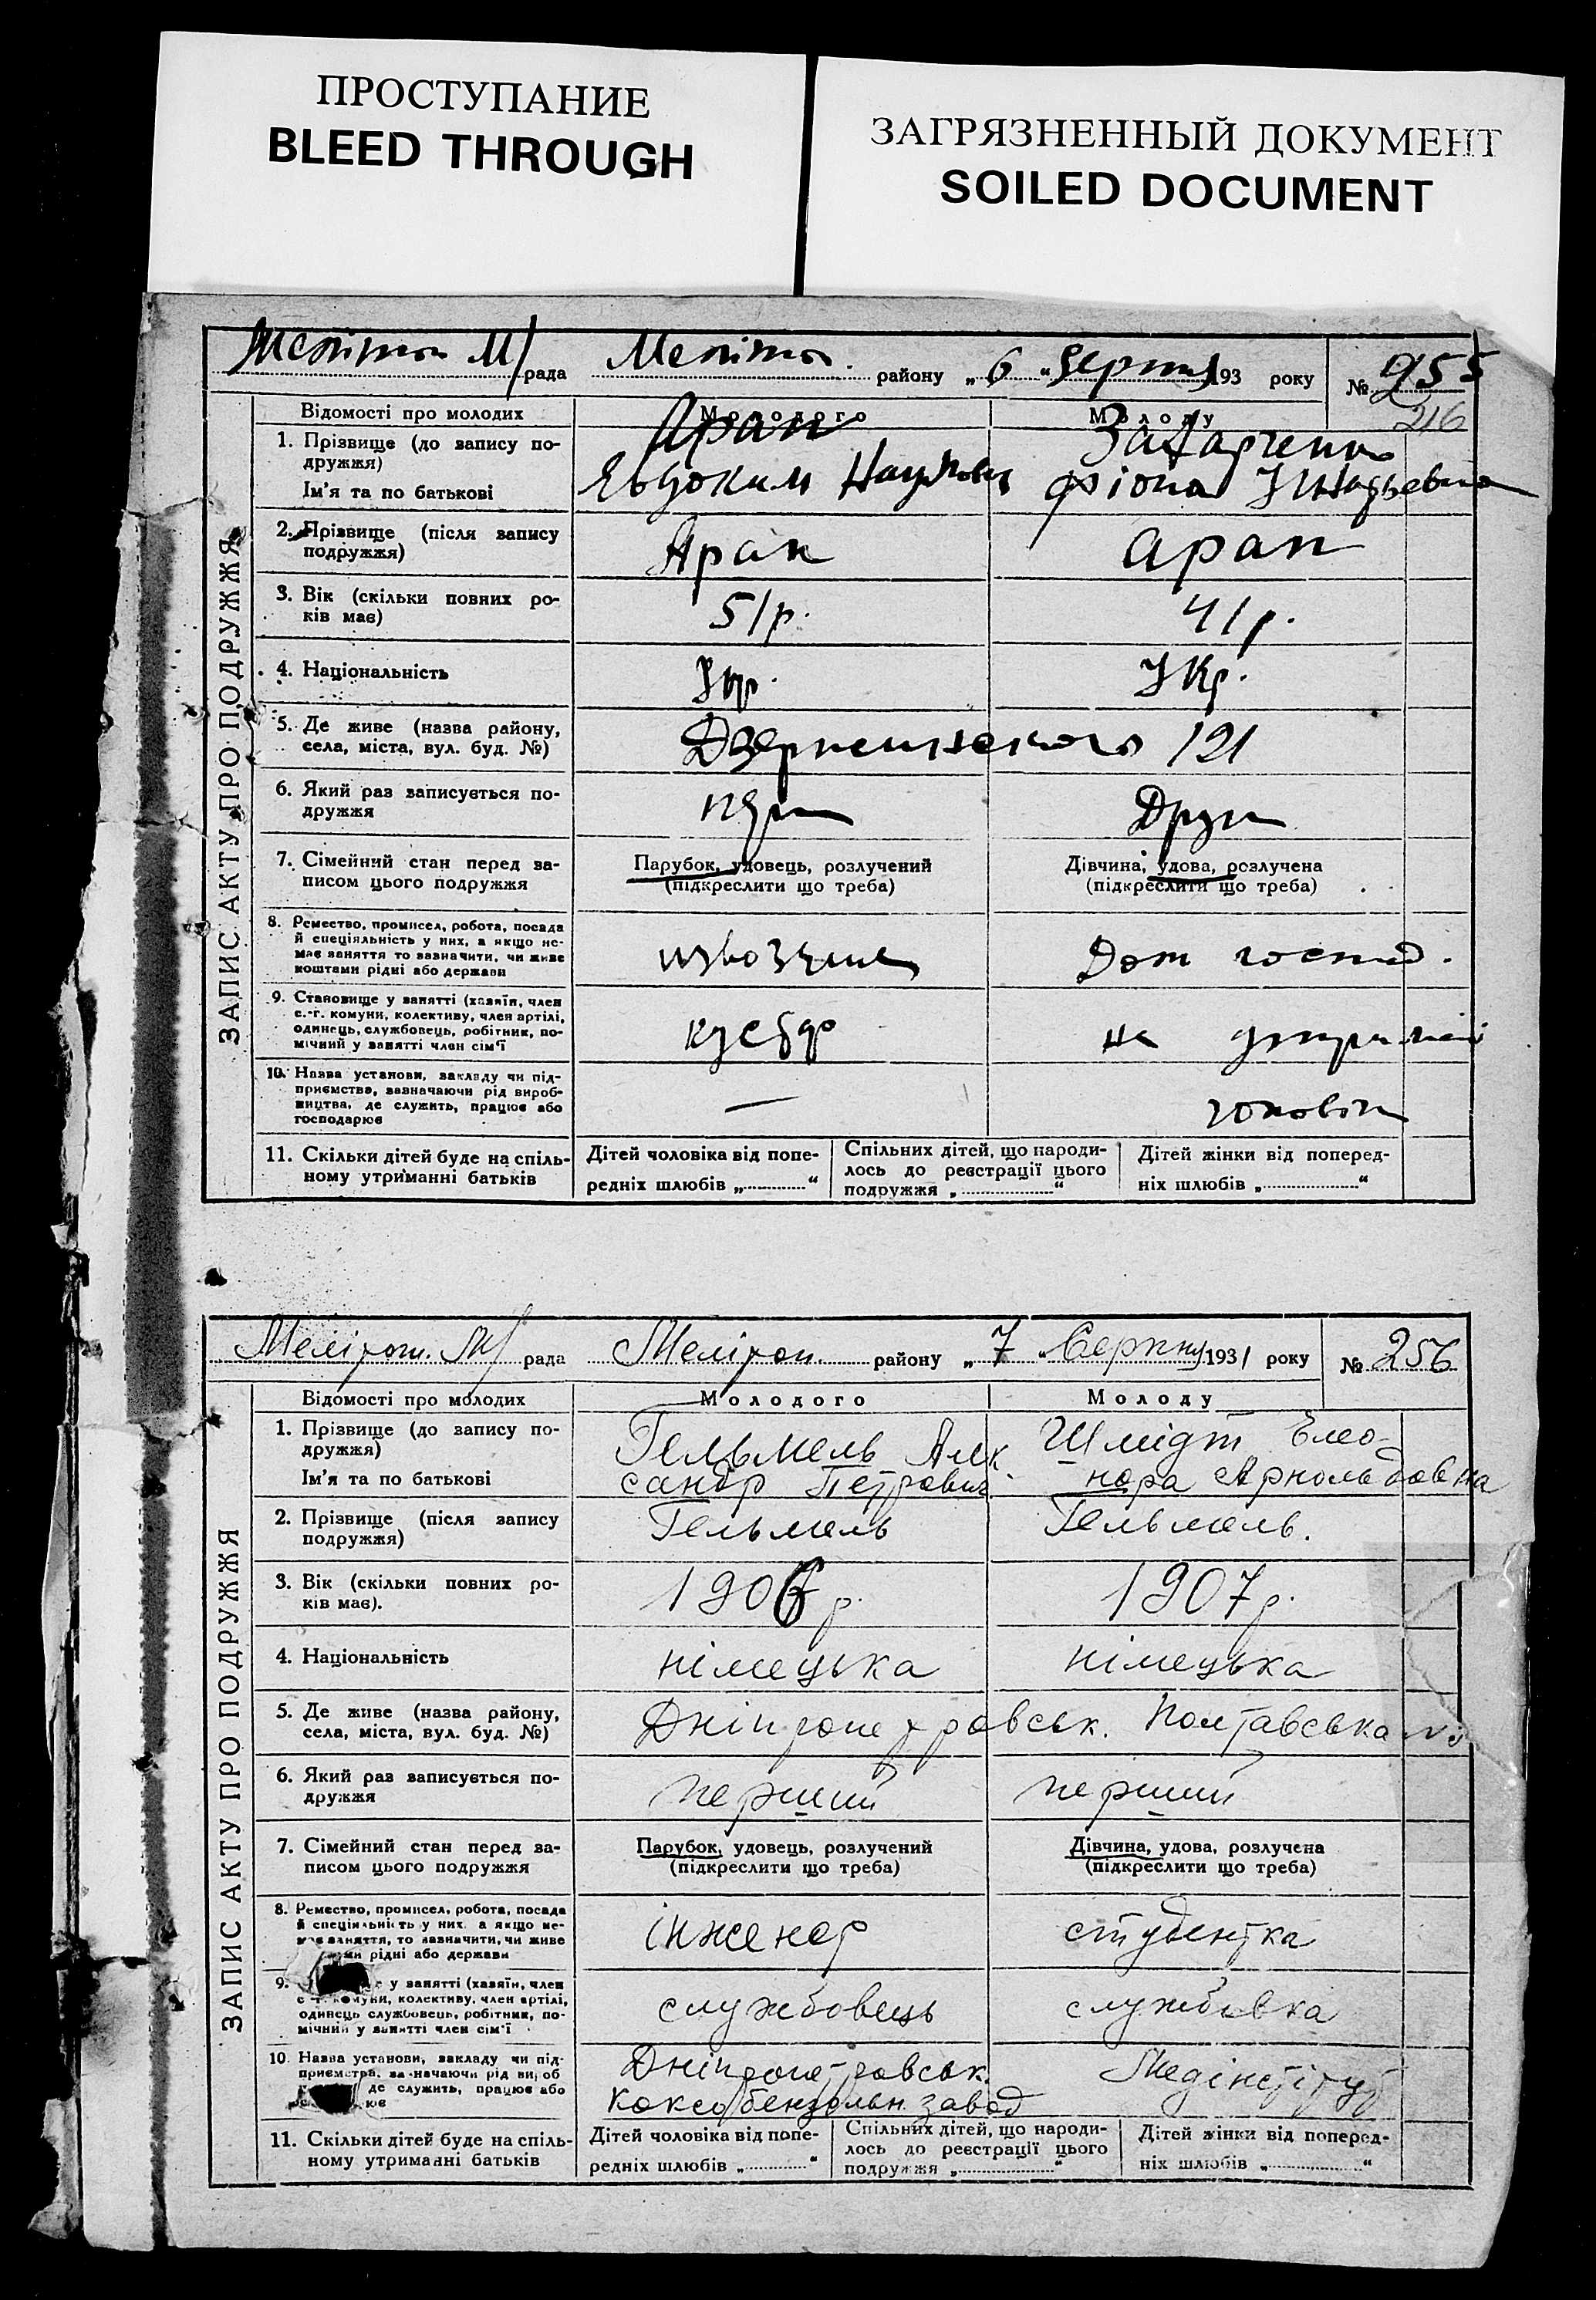 ПРОСТУПАНИЕ
BLEED THROUGH
ЗАГРЯЗНЕННЫЙ ДОКУМЕНТ
SOILED DOCUMENT
ЗАПИС АКТУ ПРО ПОДРУЖЖЯ
М/рада району „6“ Серпня 193 року № 255
216
Відомості про молодих Молодого Молоду
1. Прізвище (до запису по-
дружжя)
Арап Захарченко
Ім'я та по батькові Евдоким Наумович
2. Прізвище (після запису
подружжя)
Арап Арап
3. Вік (скільки повних ро-
ків має)
51 р. 41 р.
4. Національність Укр. Укр.
5. Де живе (назва району,
села, міста, вул. буд. №)
Дзержинського 121
6. Який раз записується по-
дружжя
7. Сімейний стан перед за-
писом цього подружжя
Парубок, удовець, розлучений
(підкреслити що треба)
Дівчина, удова, розлучена
(підкреслити що треба)
8. Ремество, промисел, робота, посада
й спеціяльність у них, а якщо не-
має заняття то зазначити, чи живе
коштами рідні або держави
Дом господ.
9. Становище у занятті (хазяїн, член
с.-г. комуни, колективу, член артілі,
одинець, службовець, робітник, по-
мічний у занятті член сім'ї
на
10. Назва установи, закладу чи під-
приємства, зазначаючи рід вироб-
ництва, де служить, працює або
господарює
—
11. Скільки дітей буде на спіль-
ному утриманні батьків
Дітей чоловіка від попе-
редніх шлюбів „ “
Спільних дітей, що народи-
лось до реєстрації цього
подружжя „ “
Дітей жінки від поперед-
ніх шлюбів „ “
ЗАПИС АКТУ ПРО ПОДРУЖЖЯ
Мелітоп. М/рада Мелітоп. району „7“ Серпня 1931 року № 256
Відомості про молодих Молодого Молоду
1. Прізвище (до запису по-
дружжя)
Гельмель Алек- Шмідт Елео-
Ім'я та по батькові сандр Петрович нора Арнольдовна
2. Прізвище (після запису
подружжя)
Гельмель Гельмель.
3. Вік (скільки повних ро-
ків має).
1906 р. 1907 р.
4. Національність німецька німецька
5. Де живе (назва району,
села, міста, вул. буд. №)
Дніпропетровськ. Полтавська №
6. Який раз записується по-
дружжя
перший перший
7. Сімейний стан перед за-
писом цього подружжя
Парубок, удовець, розлучений
(підкреслити що треба)
Дівчина, удова, розлучена
(підкреслити що треба)
8. Ремество, промисел, робота, посада
й спеціяльність у них, а якщо не-
має заняття, то зазначити, чи живе
рідні або держави
інженер студентка
9. у занятті (хазяїн, член
с.-г. комуни, колективу, член артілі,
одинець службовець, робітник, по-
мічний у занятті член сім'ї
службовець службовка
10. Назва установи, закладу чи під-
приємства, зазначаючи рід вироб
де служить, працює або
Дніпропетровськ. Медінстітут
Коксобензольн. завод
11. Скільки дітей буде на спіль-
ному утриманні батьків
Дітей чоловіка від попе-
редніх шлюбів „ “
Спільних дітей, що народи-
лось до реєстрації цього
подружжя „ “
Дітей жінки від поперед-
ніх шлюбів „ “